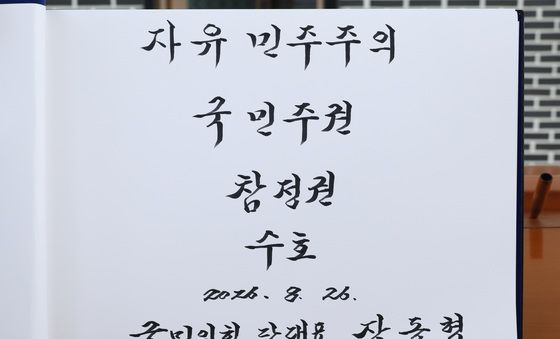 자유 민주주의
국민주권
참정권
수호
2026. 8. 26.
국민의힘 당대표 장동혁